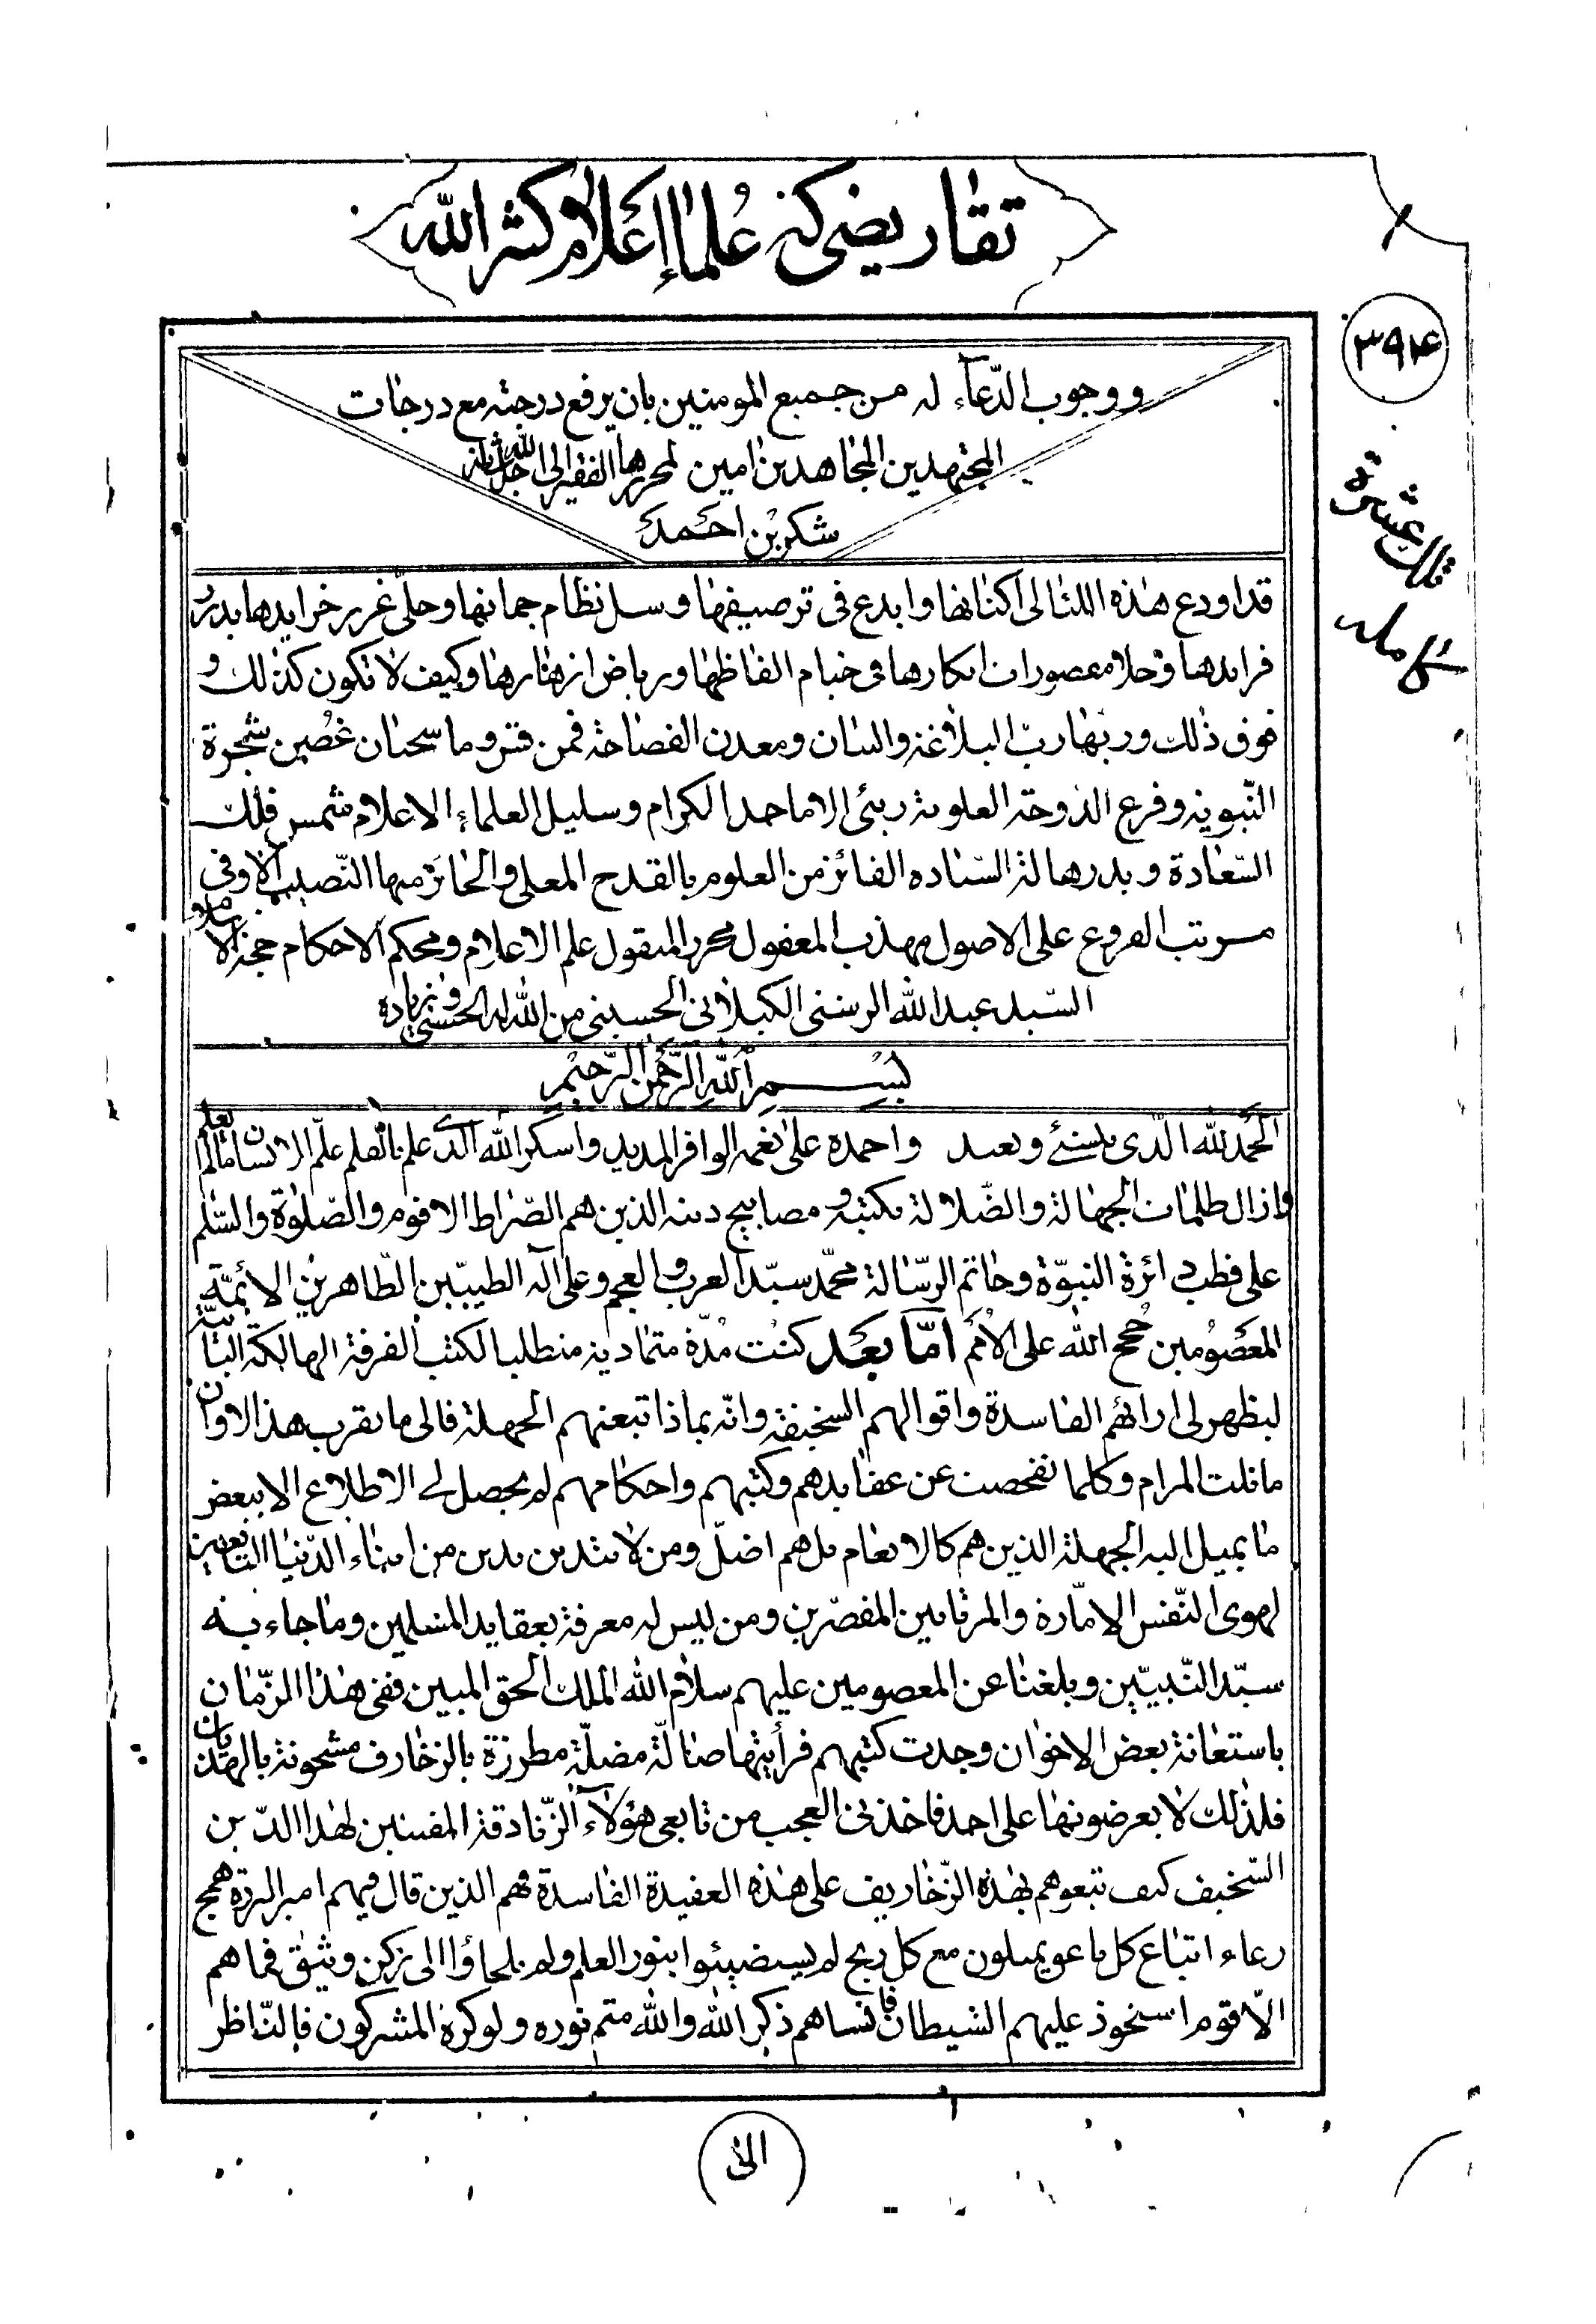 تقاريضى كه علماء اعلام كثر الله
٣٩٤
تلك عشرة
كاملة
ووجوب الدّعاء له من جميع المومنين بان يرفع درجته مع درجات
المجتهدين المجاهدين امين لمحررها الفقير الى الله جل شانه
شكر بن احمد
قد اودع هذه اللئالى اكنانها وابدع فى ترصيفها وسل نظام جمانها وحلى غرر خرايدها بدرر
فرايدها وجلا معصورات ابكارها فى خيام الفاظها ورياض ازهارها وكيف لا تكون كذلك و
فوق ذلك وربها ربّ البلاغة والبيان ومعدن الفصاحة فمن قس وما سحبان غصين شجرة
النّبوية وفرع الدوحة العلوية ربىّ الاماجد الكرام وسليل العلماء الاعلام شمس فلك
السّعادة وبدر هالة السّياده الفائز من العلوم بالقدح المعلى والحائز منها النّصيب الاوفى
مرتب الفروع على الاصول مهذب المعقول محرر المنقول علم الاعلام ومحكم الاحكام حجة الاسلام
السّيد عبد الله الرشتى الكيلانى الحسينى من الله له الحسنى وزياده
بسم الله الرّحمن الرّحيم
الحمد لله الّذى يبدئ ويعيد واحمده على نعمه الوافر المديد واشكر الله الّذى علم بالقلم علّم الانسان ما لم يعلم
وازال ظلمات الجهالة والضّلالة بكتبه و مصابيح دينه الذين هم الصّراط الاقوم والصّلوة والسّلم
على قطب دائرة النبوّة وخاتم الرسّالة محمّد سيّد العرب والعجم وعلى آله الطيبّين الطّاهرين الائمّة
المعصومين حجج الله على الاُمم امّا بعد كنت مُدّة متمادية متطلبا لكتب الفرقة الهالكة البابيّة
ليظهر لى ارائهم الفاسدة واقوالهم السخيفة وانّه بماذا تبعتهم الجهلة فالى ما يقرب هذا الاوان
ما نلت المرام وكلما تفحصت عن عقايدهم وكتبهم واحكامهم لم يحصل لى الاطلاع الا ببعض
ما يميل اليه الجهلة الذين هم كالانعام بل هم اضلّ ومن لا يتدين بدين من ابناء الدّنيا التابعين
لهوى النّفس الامّارة والمرتابين المقصّرين ومن ليس له معرفة بعقايد المسلمين وما جاء به
سيّد النّبييّن وبلغنا عن المعصومين عليهم سلام الله الملك الحق المبين ففى هذا الزّمان
باستعانة بعض الاخوان وجدت كتبهم فرأيتها ضالّة مضلّة مطرزة بالزخارف مشحونة بالهذيان
فلذلك لا يعرضونها على احد فاخذنى العجب من تابعى هؤلاء الزّنادقة المفسين لهذا الدّين
السّخيف كيف تبعوهم بهذه الزّخاريف على هذه العقيدة الفاسدة فهم الذين قال فيهم امير البررة همج
رعاء اتباع كل ناعق يميلون مع كل ريح لم يستضيئوا بنور العلم ولم يلجاؤا الى ركن وثيق فما هم
الّا قوم استحوذ عليهم الشيطان فانساهم ذكر الله والله متم نوره ولو كره المشركون فالنّاظر
الى